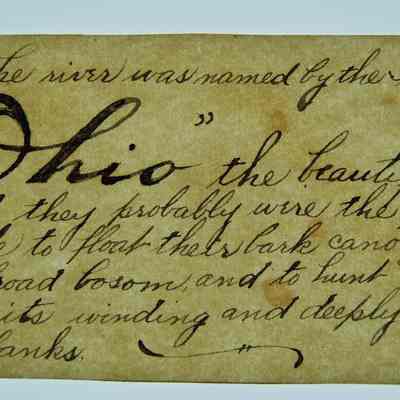 he river was named by the
"
Ohio the beauty
they probably were the
to float their bark cano
road bosom, and to hunt
its winding and deeply
banks.